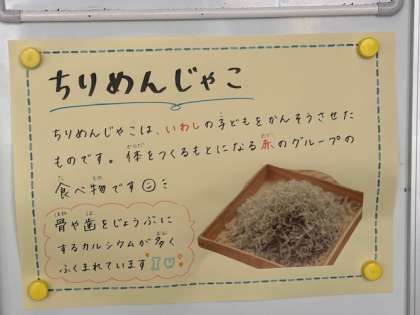 ちりめんじゃこ
ちりめんじゃこは、いわしの子どもをかんそうさせた
ものです。体をつくるもとになる赤のグループの
食べ物です
骨や歯をじょうぶに
するカルシウムが多く
ふくまれています